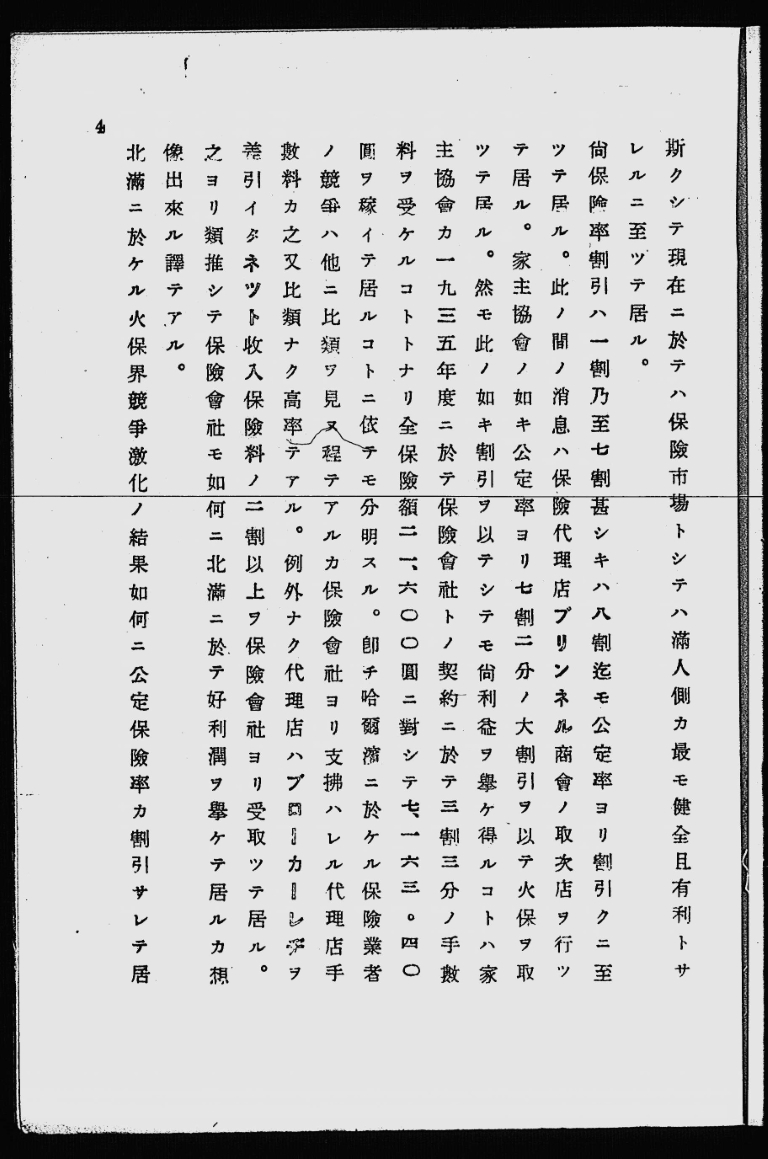 斯クシテ現在ニ於テハ保險市場トシテハ滿人側カ最モ健全且有利トサ
レルニ至ツテ居ル。
尙保險率割引ハ一割乃至七割甚シキハ八割迄モ公定率ヨリ割引クニ至
ツテ居ル。此ノ間ノ消息ハ保險代理店ブリンネル商會ノ取次店ヲ行ツ
テ居ル。家主協會ノ如キ公定率ヨリ七割二分ノ大割引ヲ以テ火保ヲ取
ツテ居ル。然モ此ノ如キ割引ヲ以テシテモ尙利益ヲ擧ケ得ルコトハ家
主協會カ一九三五年度ニ於テ保險會社トノ契約ニ於テ三割三分ノ手數
料ヲ受ケルコトトナリ全保險額二一、六〇〇圓ニ對シテ七、一六三。四〇
圓ヲ稼イテ居ルコトニ依テモ分明スル。卽チ哈爾濱ニ於ケル保險業者
ノ競爭ハ他ニ比類ヲ見ヌ程テアルカ保險會社ヨリ支拂ハレル代理店手
數料カ之又比類ナク高率テアル。例外ナク代理店ハブローカーレーヂヲ
差引イタネツト收入保險料ノ二割以上ヲ保險會社ヨリ受取ツテ居ル。
之ヨリ類推シテ保險會社モ如何ニ北滿ニ於テ好利潤ヲ擧ケテ居ルカ想
像出來ル譯テアル。
北滿ニ於ケル火保界競爭激化ノ結果如何ニ公定保險率カ割引サレテ居
4